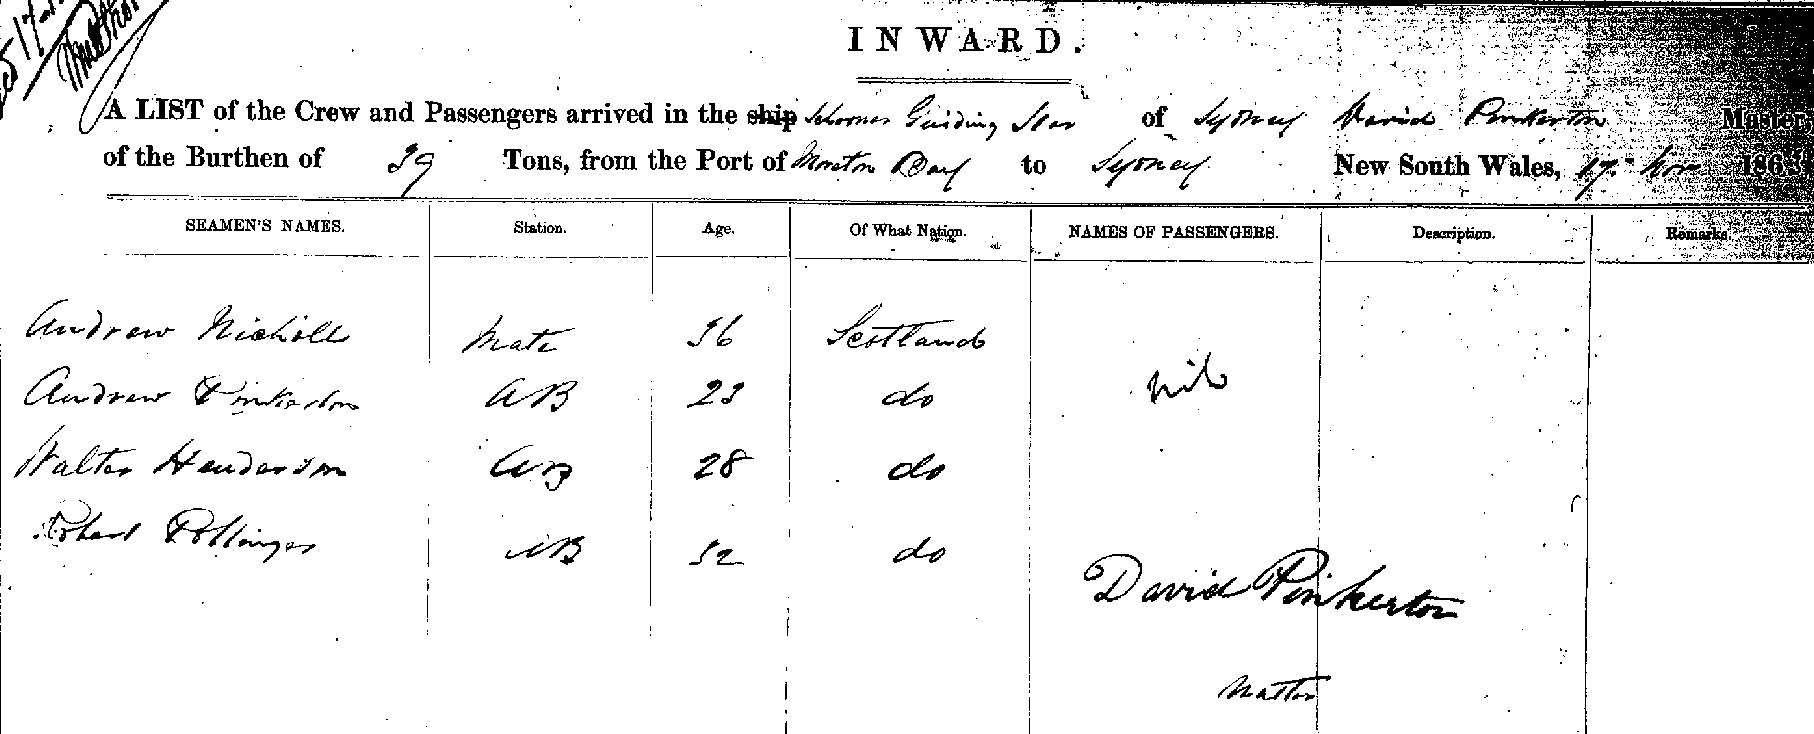 INWARD.
A LIST of the Crew and Passengers arrived in the ship Schooner Guiding Star of Sydney David Pinkerton Master,
of the Burthen of 39 Tons, from the Port of Moreton Bay to Sydney New South Wales, 17th Nov 1863
SEAMEN'S NAMES. Station. Age. Of What Nation. NAMES OF PASSENGERS. Description. Remarks.
Andrew Nicholl Mate 36 Scotland
nil
Andrew Pinkerton AB 23 do
Walter Henderson AB 28 do
Robert AB 32 do
David Pinkerton
Master